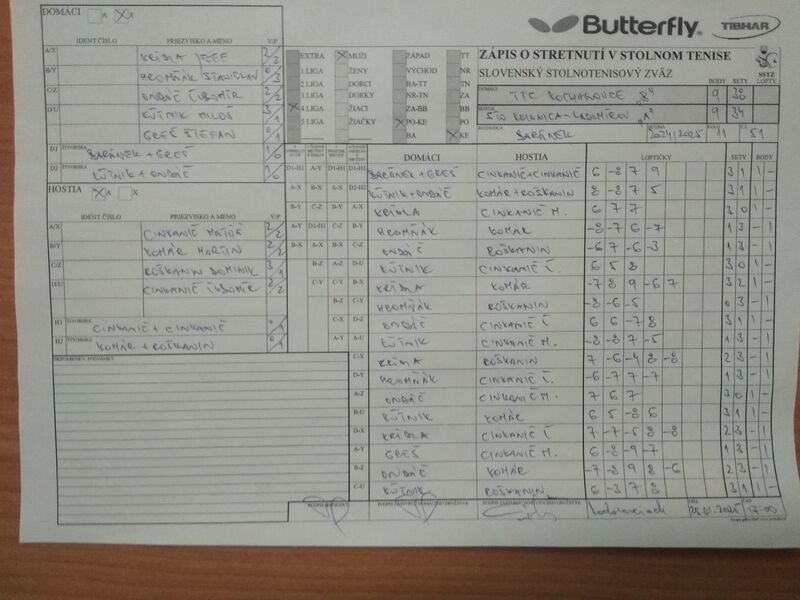 DOMÁCI A X
Butterfly
TIBHAR
IDENT ČÍSLO PRIEZVISKO A MENO V/P
A/X KRIŠLA JOZEF 2/2
B/Y HROMŇÁK STANISLAV 0/3
C/Z ONDÁČ ĽUBOMÍR 2/2
D/U KÚTNIK MILOŠ 3/1
GREŠ ŠTEFAN 0/1
D1 ŠTVORHRA BARÁNEK + GREŠ 1/0
D2 ŠTVORHRA KÚTNIK + ONDÁČ 1/0
HOSTIA A X
IDENT ČÍSLO PRIEZVISKO A MENO V/P
A/X CINKANIČ MATÚŠ 2/2
B/Y KOMÁR MARTIN 2/2
C/Z ROŠKANIN DOMINIK 3/1
D/U CINKANIČ ĽUBOMÍR 2/2
H1 ŠTVORHRA CINKANIČ + CINKANIČ 0/1
H2 ŠTVORHRA KOMÁR + ROŠKANIN 0/1
EXTRA MUŽI ZÁPAD TT
1 LIGA ŽENY VÝCHOD NR
2 LIGA DORCI BA-TT TN
3 LIGA DORKY NR-TN ZA
4 LIGA ŽIACI ZA-BB BB
5 LIGA ŽIAČKY PO-KE PO
BA KE
ZÁPIS O STRETNUTÍ V STOLNOM TENISE
SLOVENSKÝ STOLNOTENISOVÝ ZVÄZ
SSTZ
BODY SETY LOPTY
DOMÁCI TTC KOCHANOVCE "B" 9
HOSTIA STO KOLONICA-LADOMIROV "A" 9 34
ROZHODCA BARÁNEK 2024/2025 11 51
DOMÁCI HOSTIA LOPTIČKY SETY BODY
BARÁNEK + GREŠ CINKANIČ + CINKANIČ 6 -8 7 9 3 1 1 -
KÚTNIK + ONDÁČ KOMÁR + ROŠKANIN 8 -8 7 5 3 1 1 -
A-X KRIŠLA CINKANIČ M. 6 7 7 3 0 1 -
B-Y HROMŇÁK KOMÁR -8 -7 6 -7 1 3 - 1
C-Z ONDÁČ ROŠKANIN -6 7 -6 -3 1 3 - 1
D-U KÚTNIK CINKANIČ Ľ. 6 5 8 3 0 1 -
B-X KRIŠLA KOMÁR -7 8 9 -6 7 3 2 1 -
C-Y HROMŇÁK ROŠKANIN -8 -6 -5 0 3 - 1
D-Z ONDÁČ CINKANIČ Ľ 6 6 -7 8 3 1 1 -
A-U KÚTNIK CINKANIČ M. -8 -8 7 -5 1 3 - 1
C-X KRIŠLA ROŠKANIN 7 -6 -4 8 -8 2 3 - 1
D-Y HROMŇÁK CINKANIČ Ľ. -6 -7 7 -7 1 3 - 1
A-Z ONDÁČ CINKANIČ M. 7 6 7 3 0 1 -
B-U KÚTNIK KOMÁR 6 5 -8 6 3 1 1 -
D-X KRIŠLA CINKANIČ Ľ 7 -7 -5 8 -8 2 3 - 1
A-Y GREŠ CINKANIČ M. 6 -8 -9 -7 1 3 - 1
B-Z ONDÁČ KOMÁR -7 -8 9 8 -6 2 3 - 1
C-U KÚTNIK ROŠKANIN 6 -3 7 8 3 1 1 -
25.01.2025 17-00